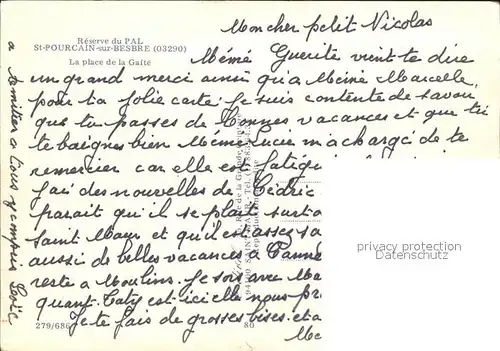 Réserve du PAL
St-POURCAIN-sur-BESBRE (03290)
La place de la Gaîté
Mon cher petit Nicolas
Mémé Guerite vient te dire
un grand merci ainsi qu'a Mémé Marcelle
pour ta jolie carte. Je suis contente de savoir
que tu passes de bonnes vacances et que tu
te baignes bien Mémé Lucie m'a chargé de te
remercier car elle est fatig
j'ai des nouvelles de Cédric
parait qu'il se plait surt
Saint Maur et qu'il est assez sa
aussi de belles vacances à Canne
reste a Moulins. Je sors avec Ma
quant Caty est ici elle nous pr
Je te fais de grosses bises et a
Me
279/686
80
a tous y compris Loïc
privacy protection